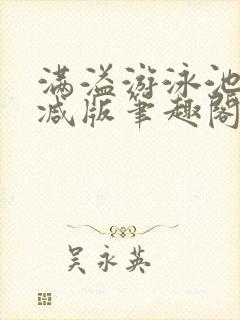 满溢游泳池
减版笔趣阁
吴永英